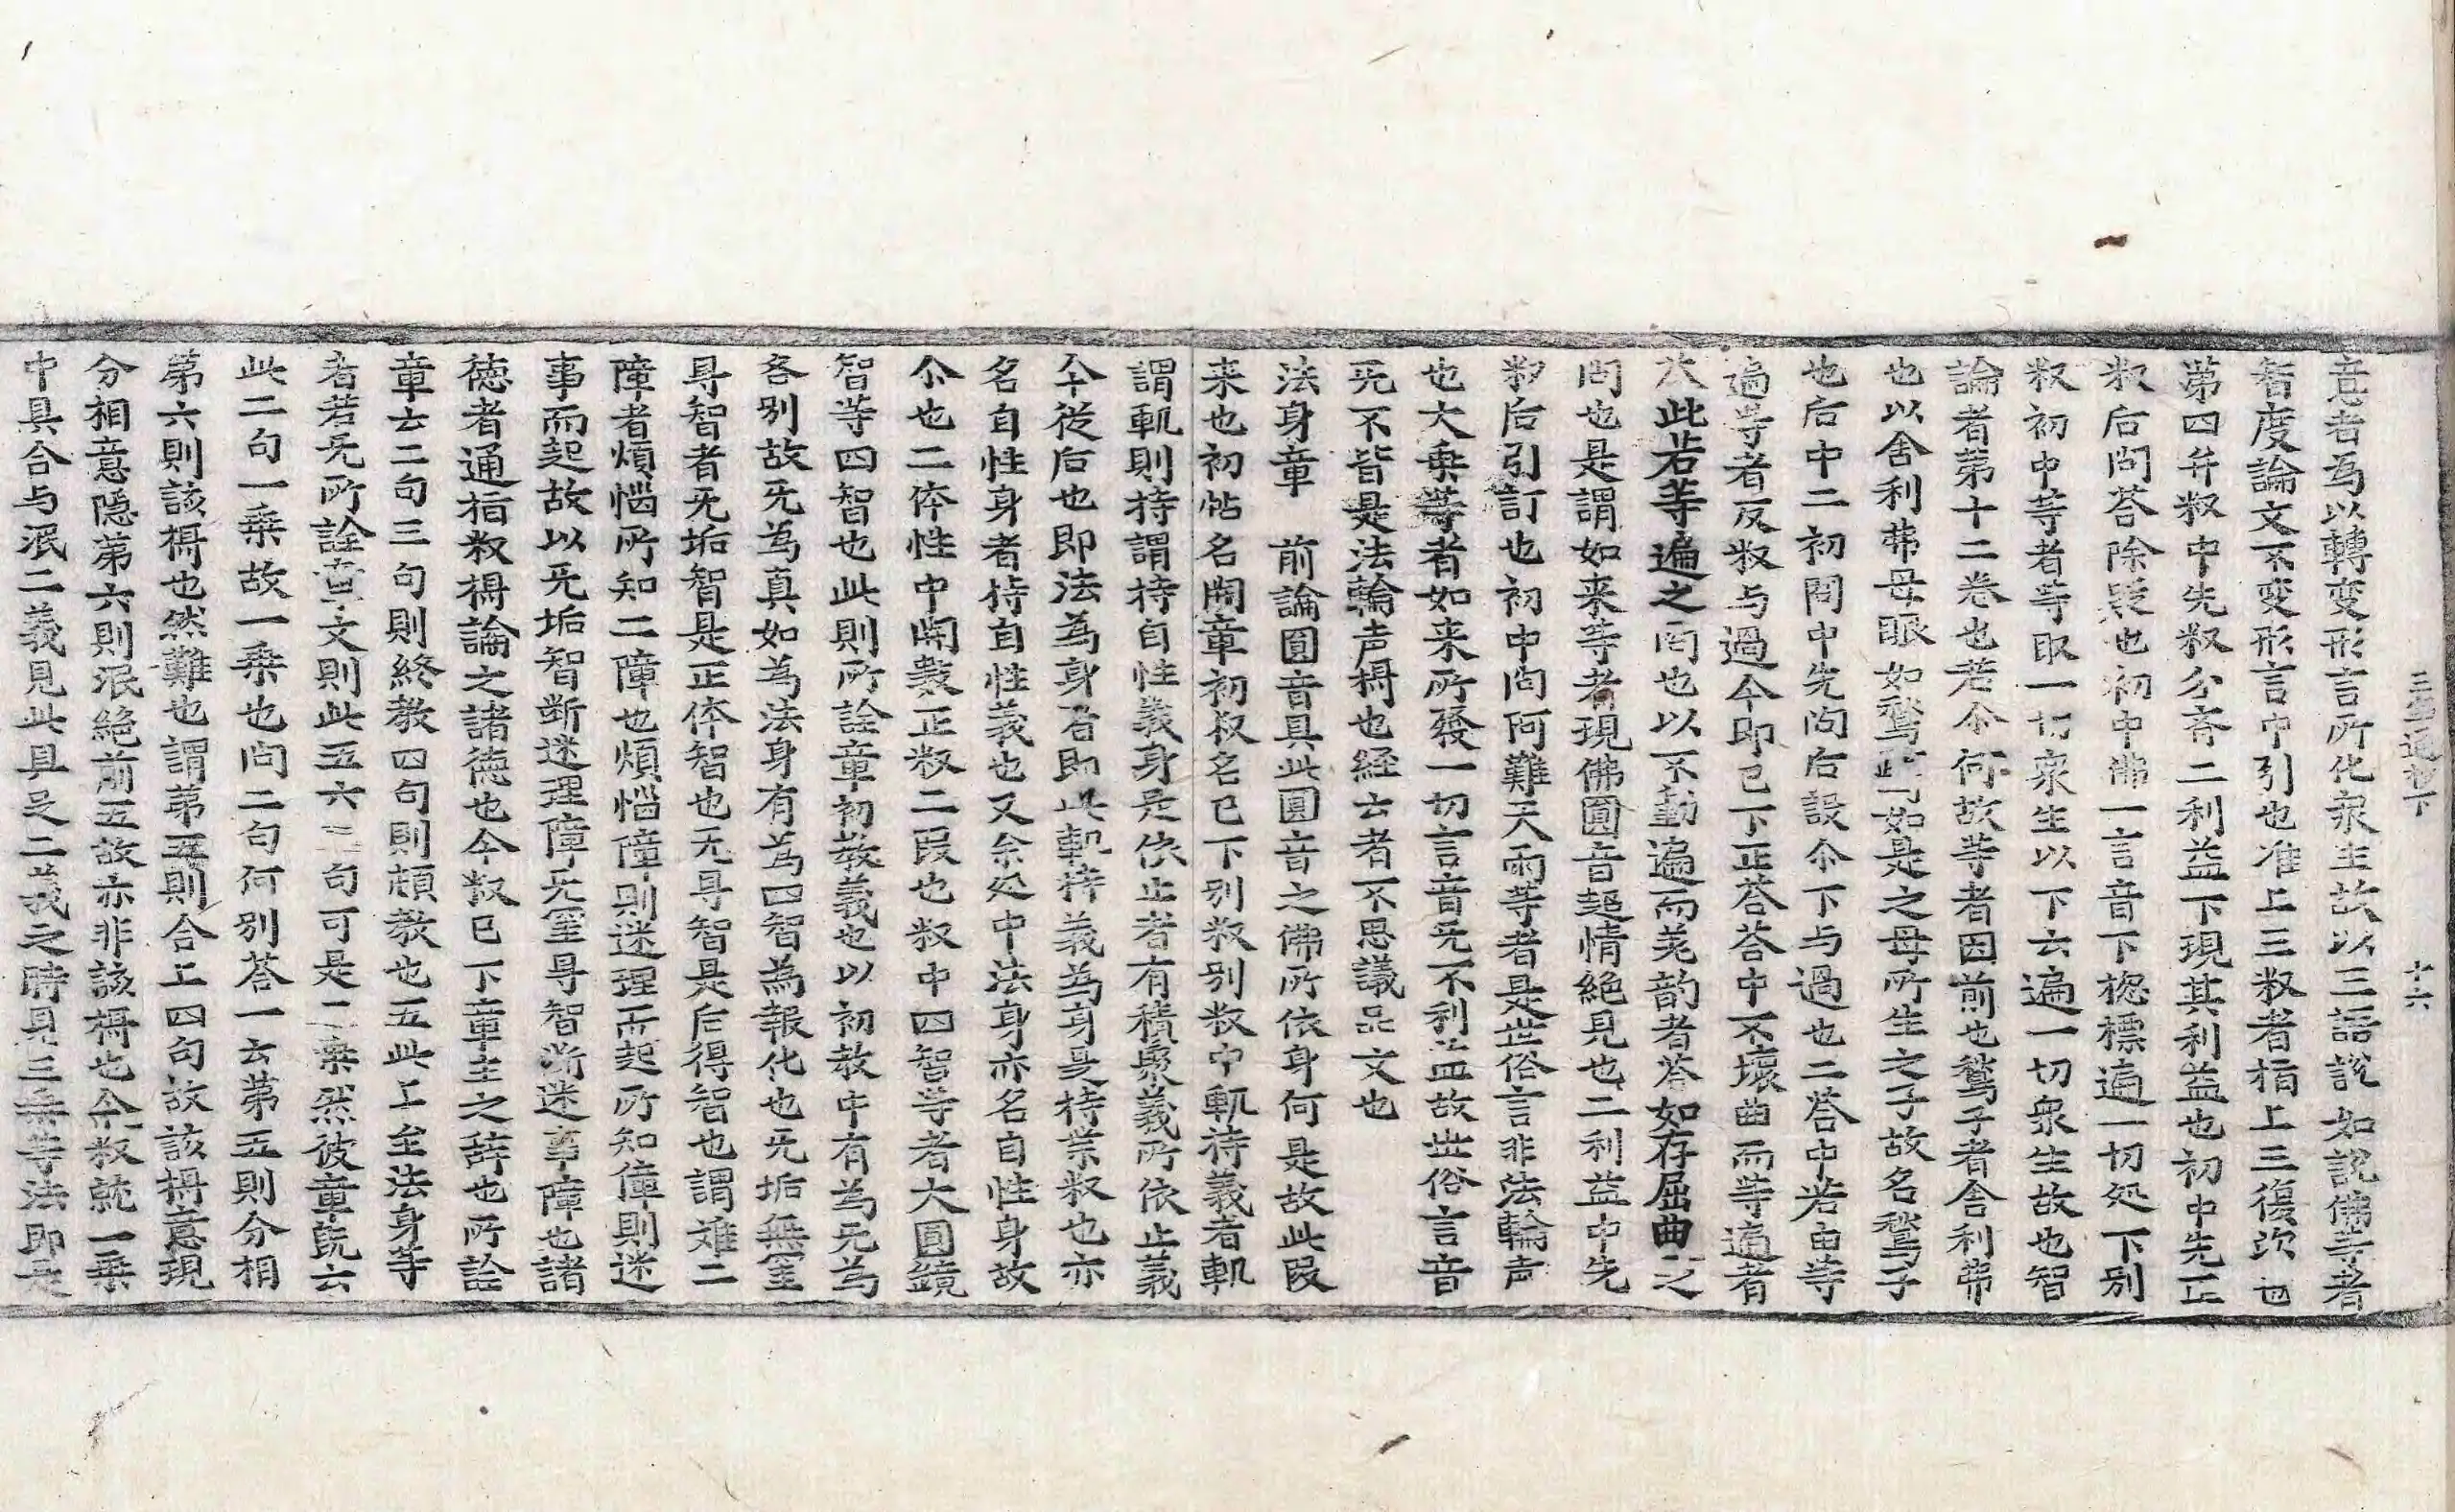 三宝章通也下 十六
意者為以轉变形言所化衆生故以三語說如說佛等者
智度論文不变形言中引也准上三釈者栺上三復次也
第四弁釈中先釈分斉二利益下現其利益也初中先正
釈后问荅除疑也初中佛一言音下揔標遍一切处下別
釈初中等者等取一切衆生以下云遍一切衆生故也智
論者第十二卷也若尒何故等者因前也鶖子者舍利弗
也以舍利弗母眼如鶖如是之母所生之子故名鶖子
也后中二初問中先问后設尒下与過也二荅中若由等
遍等者反釈与過今即已下正荅荅中不壞曲而等遍者
次此若等遍之问也以不動遍而美韵者荅如存屈曲之
问也是謂如来等者現佛圓音超情絶見也二利益中先
釈后引訂也初中问阿難天雨等者是世俗言非法輪声
也大乗等者如来所發一切言音无不利益故世俗言音
无不皆是法輪声攝也経云者不思議品文也
法身章 前論圓音具此圓音之佛所依身何是故此段
来也初帖名開章初釈名已下別釈別釈中軌持義者軌
謂軌則持謂持自性義身是依止者有積聚義所依止義
今從后也即法為身者即此軌持義為身是持業釈也亦
名自性身者持自性義也又余処中法身亦名自性身故
尒也二体性中開數正釈二段也釈中四智等者大圓鏡
智等四智也此則所詮章初教義也以初教中有為无為
各別故无為真如為法身有為四智為報化也无垢無罣
㝵智者无垢智是正体智也无㝵智是后得智也謂难二
障者煩惱所知二障也煩惱障則迷理而起所知障則迷
事而起故以无垢智断迷理障无罣㝵智断迷事障也諸
徳者通栺釈攝論之諸徳也今釈已下章主之辞也所詮
章云二句三句則終教四句則頓教也五此上至法身等
者若无所詮章文則此五六二句可是二乗然彼章旣云
此二句一乗故一乗也问二句何別荅一云第五則分相
第六則該攝也然難也謂第五則合上四句故該攝意現
分相意隠第六則泯絶前五故亦非該攝也今釈就一乗
中具合与泯二義見此具足二義之時具三乗等法即是